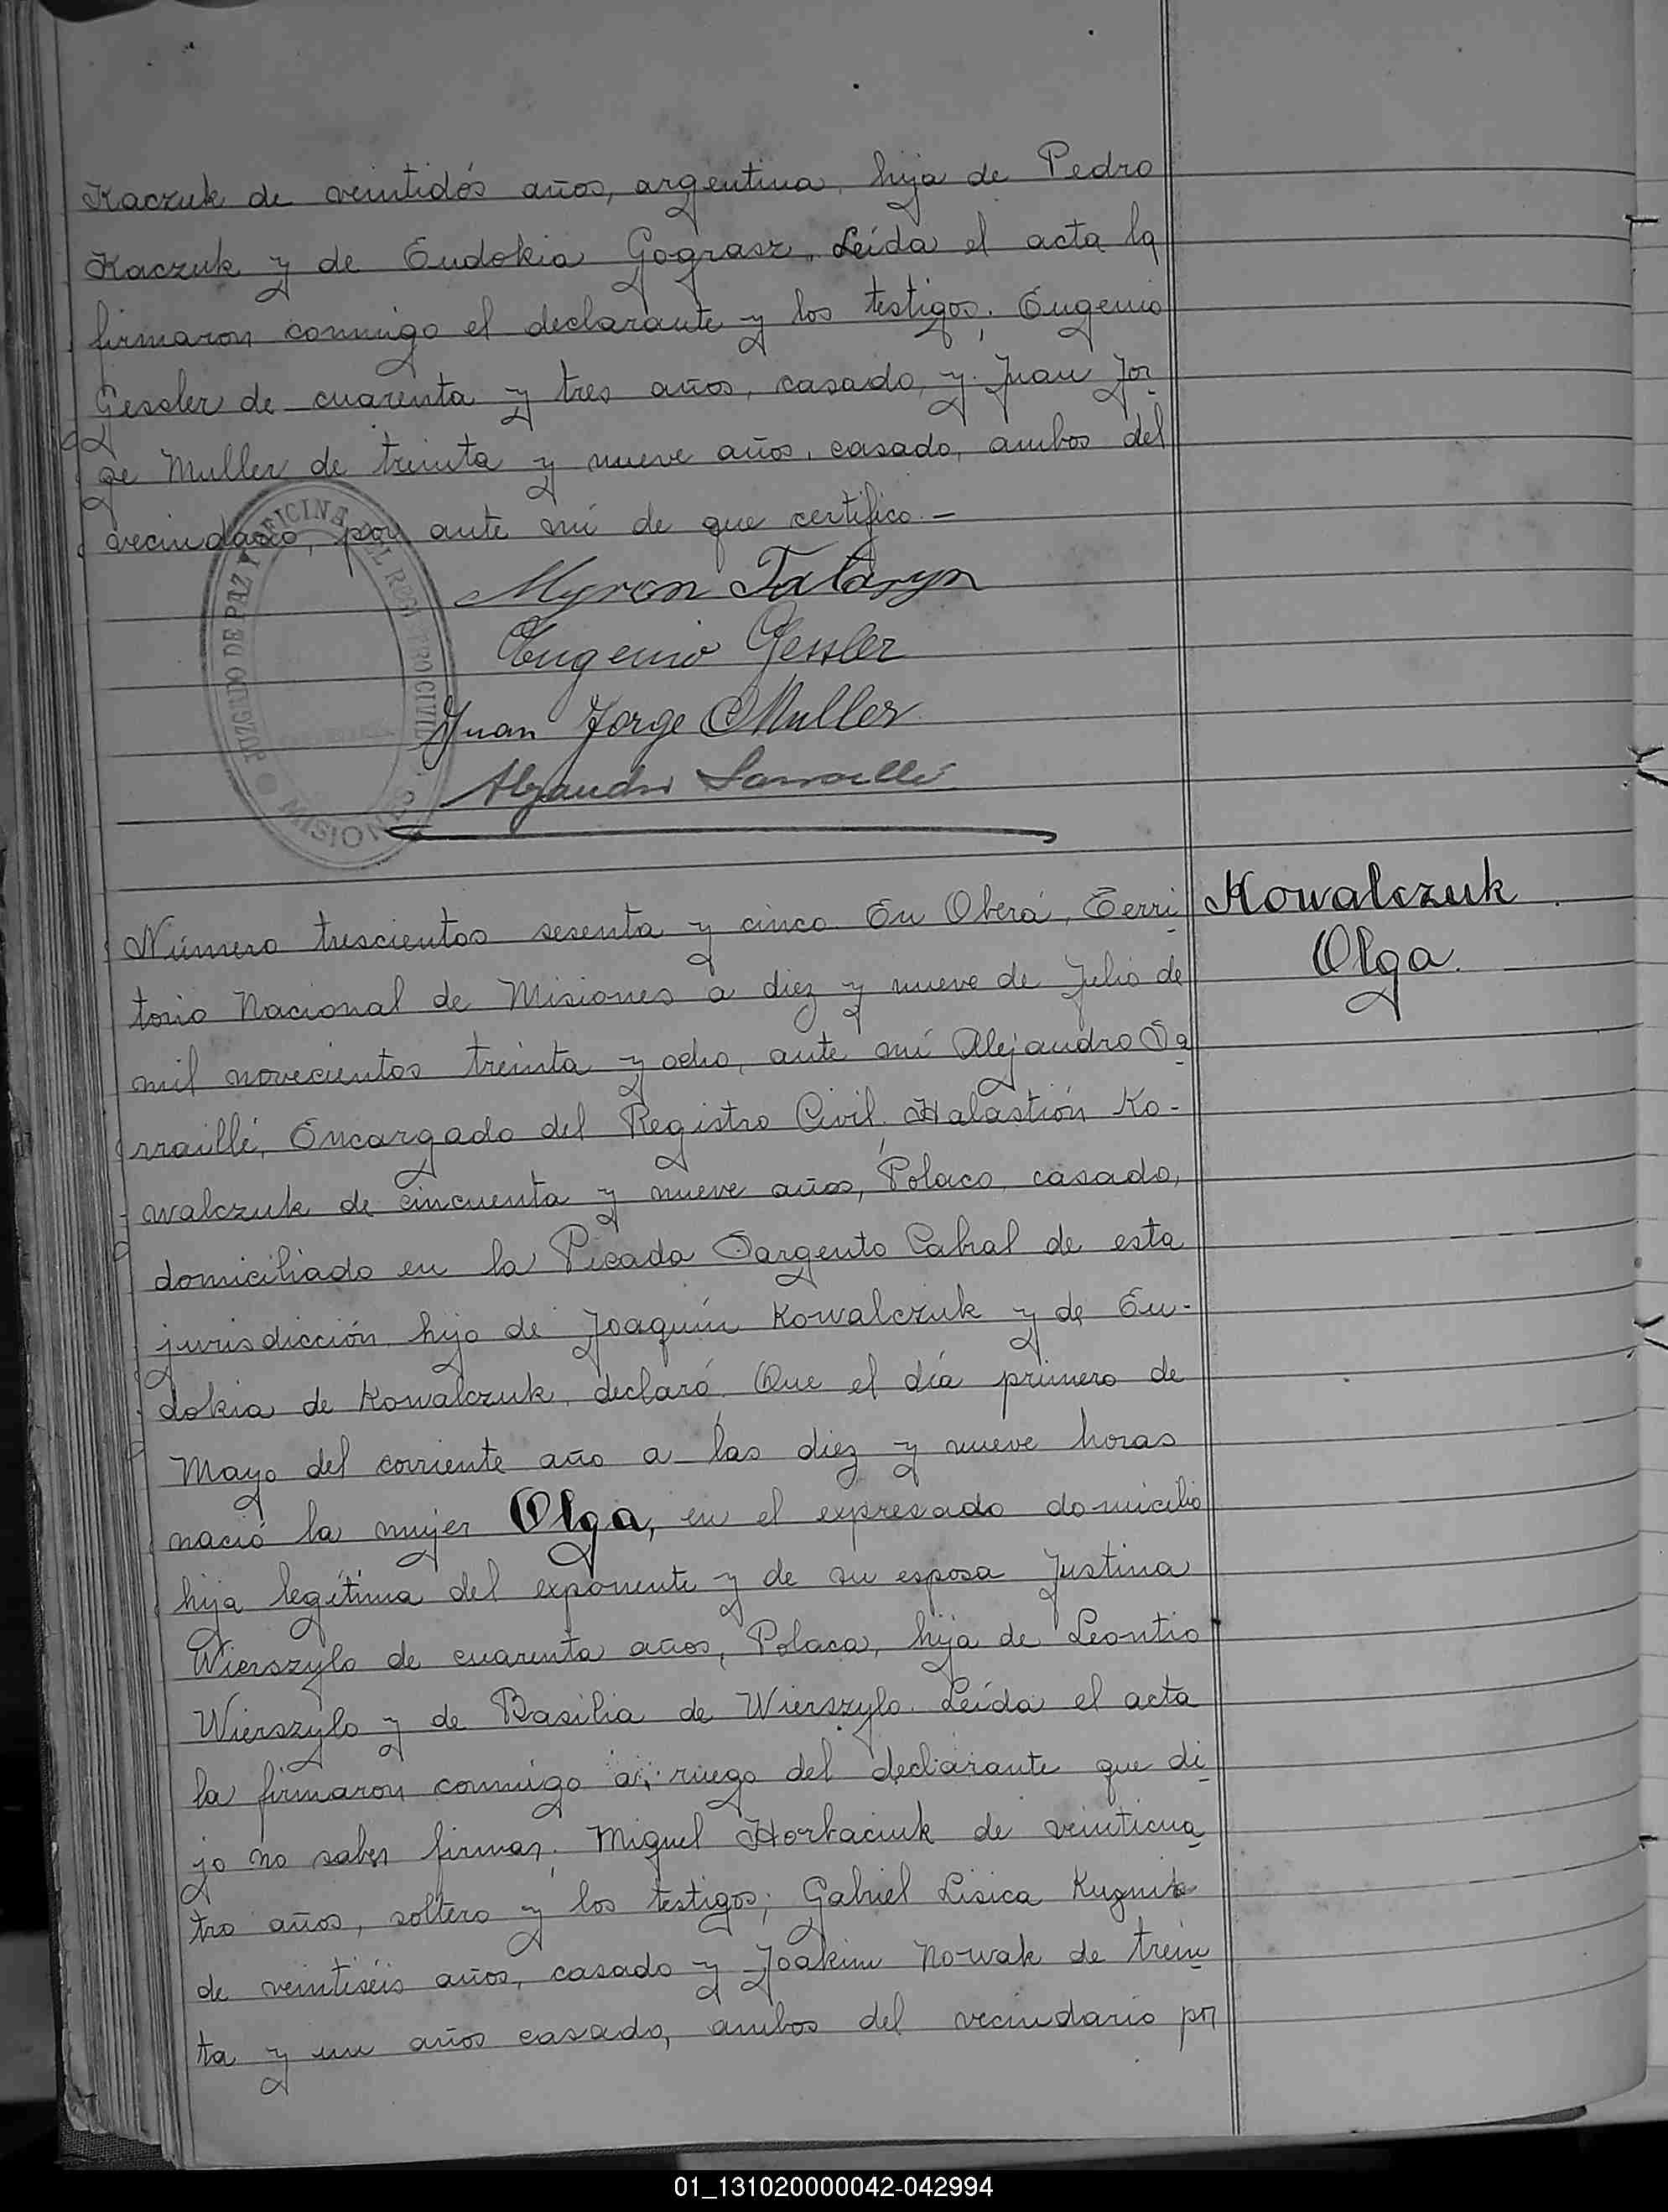 Kaczuk de veintidós años, argentina, hija de Pedro
Kaczuk y de Eudokia Gograsz. Leída el acta la
firmaron conmigo el declarante y los testigos: Eugenio
Gessler de cuarenta y tres años, casado, y Juan Jor
ge Muller de treinta y nueve años, casado, ambos del
vecindario, por ante mí de que certifico.-
Myron Tataryn
Eugenio Gessler
Juan Jorge Muller
Alejandro Sarraillé
JUZGADO DE PAZ Y OFICINA DEL REGISTRO CIVIL
MISIONES
Kowalczuk
Olga.
Número trescientos sesenta y cinco. En Oberá, Terri
torio Nacional de Misiones a diez y nueve de Julio de
mil novecientos treinta y ocho, ante mí Alejandro Sa
rraillé, Encargado del Registro Civil. Halastión Ko-
walczuk de cincuenta y nueve años, Polaco, casado,
domiciliado en la Picada Sargento Cabral de esta
jurisdicción, hijo de Joaquín Kowalczuk y de Eu-
dokia de Kowalczuk, declaró: Que el día primero de
Mayo del corriente año a las diez y nueve horas
nació la mujer Olga, en el expresado domicilio
hija legítima del exponente y de su esposa Justina
Wierszylo de cuarenta años, Polaca, hija de Leontio
Wierszylo y de Basilia de Wierszylo. Leída el acta
la firmaron conmigo a ruego del declarante que di
jo no saber firmar: Miguel Horbaciuk de veinticua
tro años, soltero y los testigos; Gabriel Lisica Kuzmik
de veintiséis años, casado y Joakim Nowak de trein
ta y un años casado, ambos del vecindario por
01_131020000042-042994